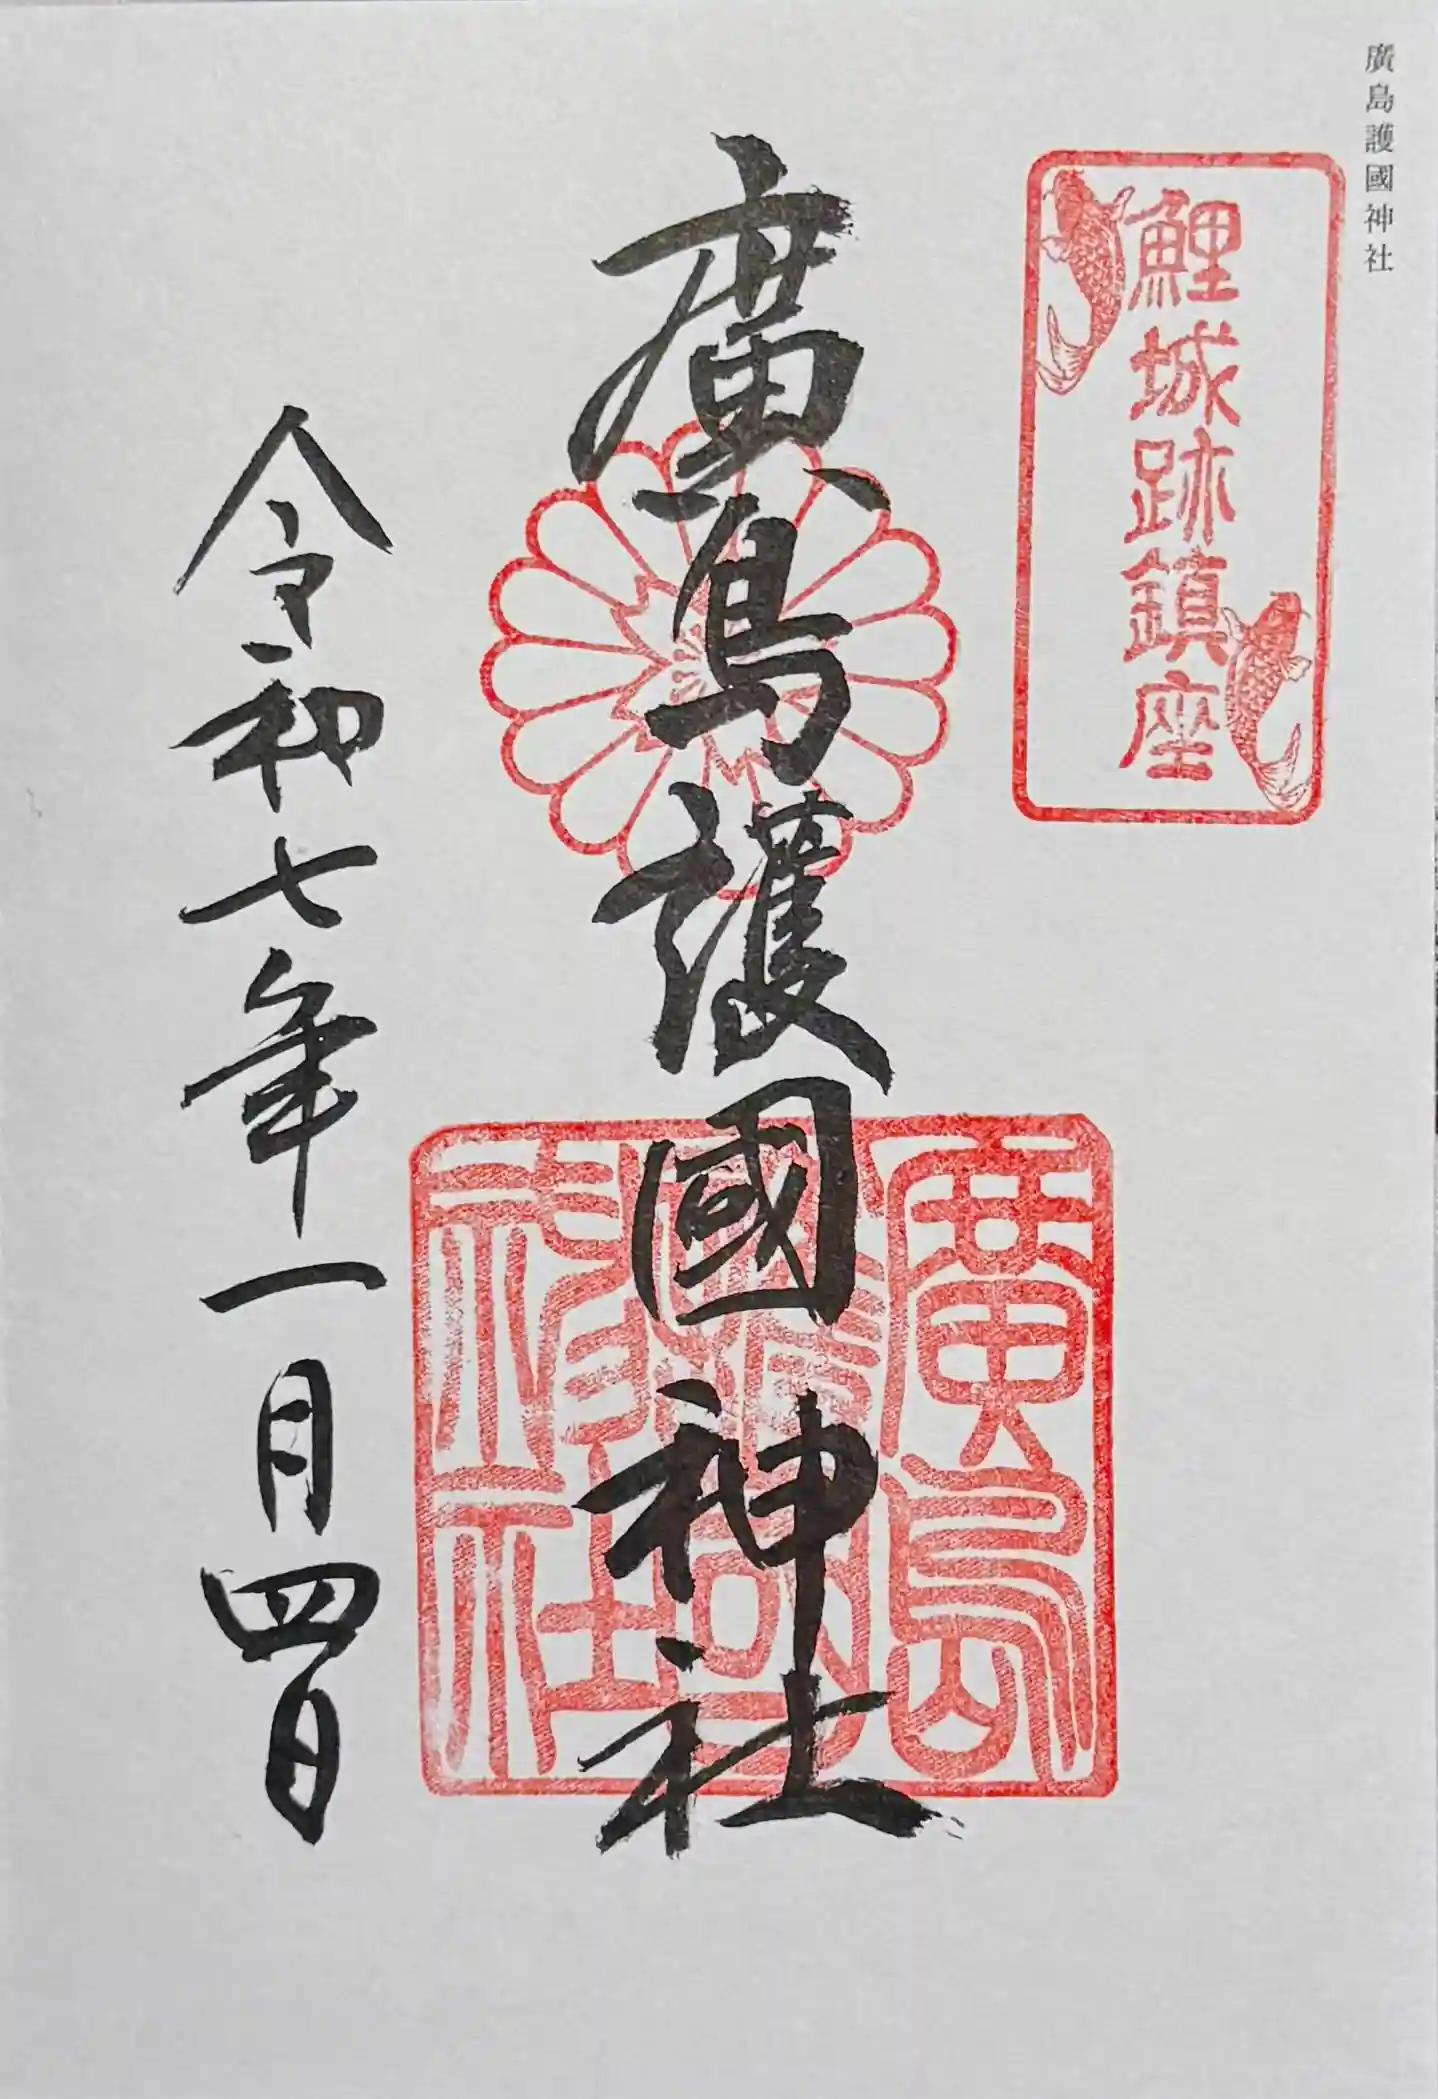 廣島護國神社
鯉城跡鎮座
廣島護國神社
廣島
護國
神社
令和七年一月四日